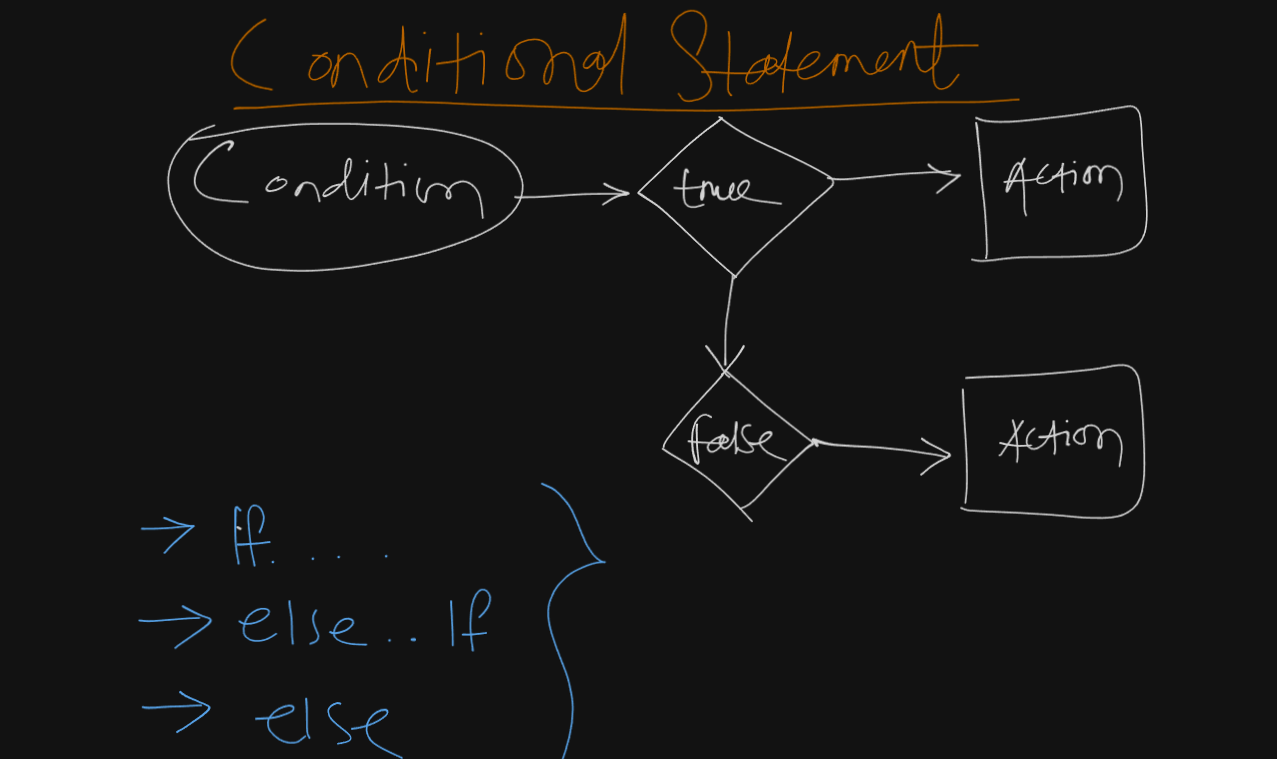 Conditional Statement
Condition
true
Action
false
Action
If....
else.. If
else